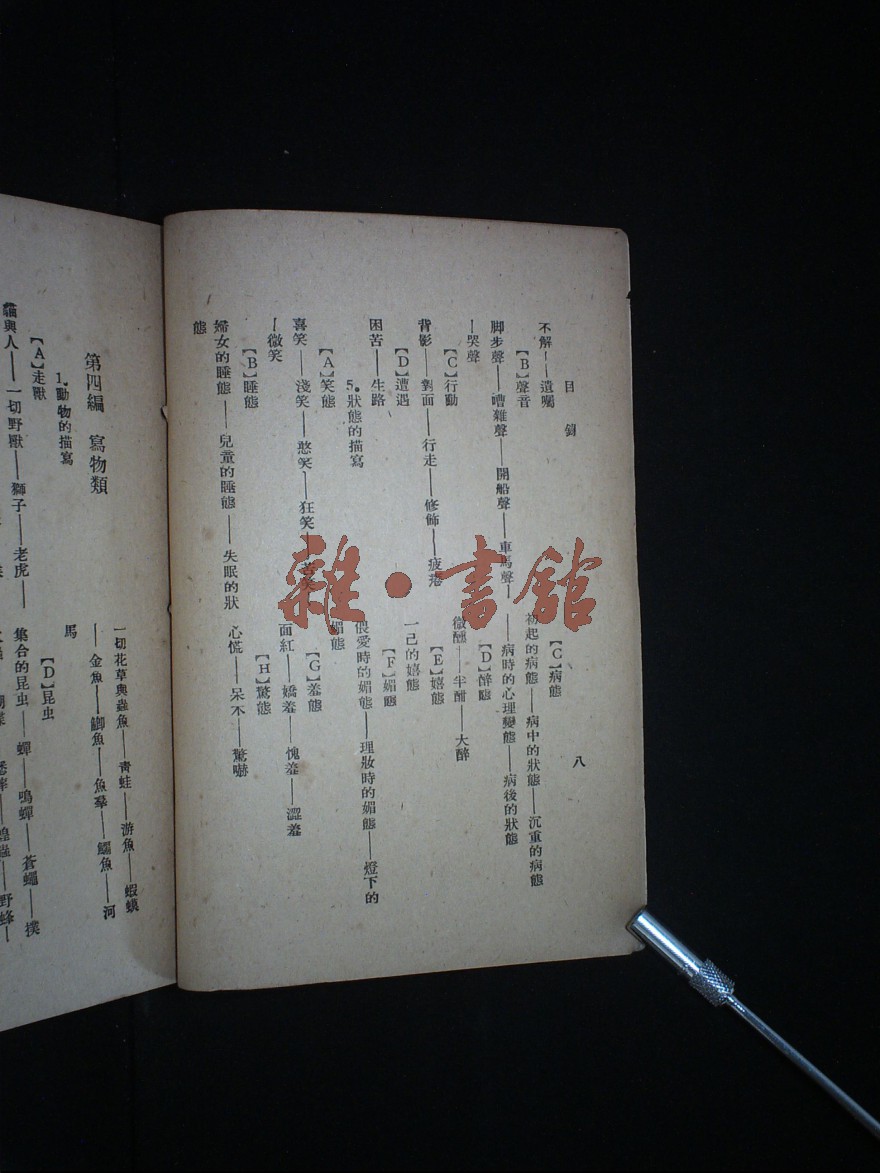 目錄
八
不解——遺囑
【B】聲音
脚步聲——嘈雜聲——開船聲——車馬聲—
—哭聲
【C】行動
背影——對面——行走——修飾——疲憊
【D】遭遇
困苦——生路
5.狀態的描寫
【A】笑態
喜笑——淺笑——憨笑——狂笑
—微笑
【B】睡態
婦女的睡態——兒童的睡態——失眠的狀
態
【C】病態
初起的病態——病中的狀態——沉重的病態
——病時的心理變態——病後的狀態
【D】醉態
微醺——半酣——大醉
【E】嬉態
一己的嬉態
【F】媚態
偎愛時的媚態——理妝時的媚態——燈下的
媚態
【G】羞態
面紅——嬌羞——愧羞——澀羞
【H】驚態
心慌——呆木——驚嚇
第四編 寫物類
1.動物的描寫
【A】走獸
貓與人——一切野獸——獅子——老虎——
一切花草與蟲魚——青蛙——游魚——蝦蟆
——金魚——鯽魚——魚羣——鱷魚——河
馬
【D】昆虫
集合的昆虫——蟬——鳴蟬——蒼蠅——撲
蝗蟲——野蜂—
雜·書館